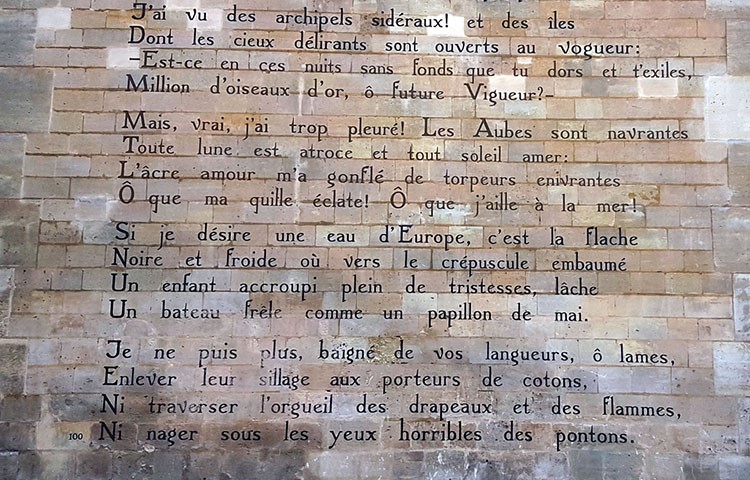 J'ai vu des archipels sidéraux! et des îles
Dont les cieux délirants sont ouverts au vogueur:
–Est-ce en ces nuits sans fonds que tu dors et t'exiles,
Million d'oiseaux d'or, ô future Vigueur?–
Mais, vrai, j'ai trop pleuré! Les Aubes sont navrantes
Toute lune est atroce et tout soleil amer:
L'âcre amour m'a gonflé de torpeurs enivrantes
Ô que ma quille éclate! Ô que j'aille à la mer!
Si je désire une eau d'Europe, c'est la flache
Noire et froide où vers le crépuscule embaumé
Un enfant accroupi plein de tristesses, lâche
Un bateau frêle comme un papillon de mai.
Je ne puis plus, baigné de vos langueurs, ô lames,
Enlever leur sillage aux porteurs de cotons,
Ni traverser l'orgueil des drapeaux et des flammes,
100 Ni nager sous les yeux horribles des pontons.